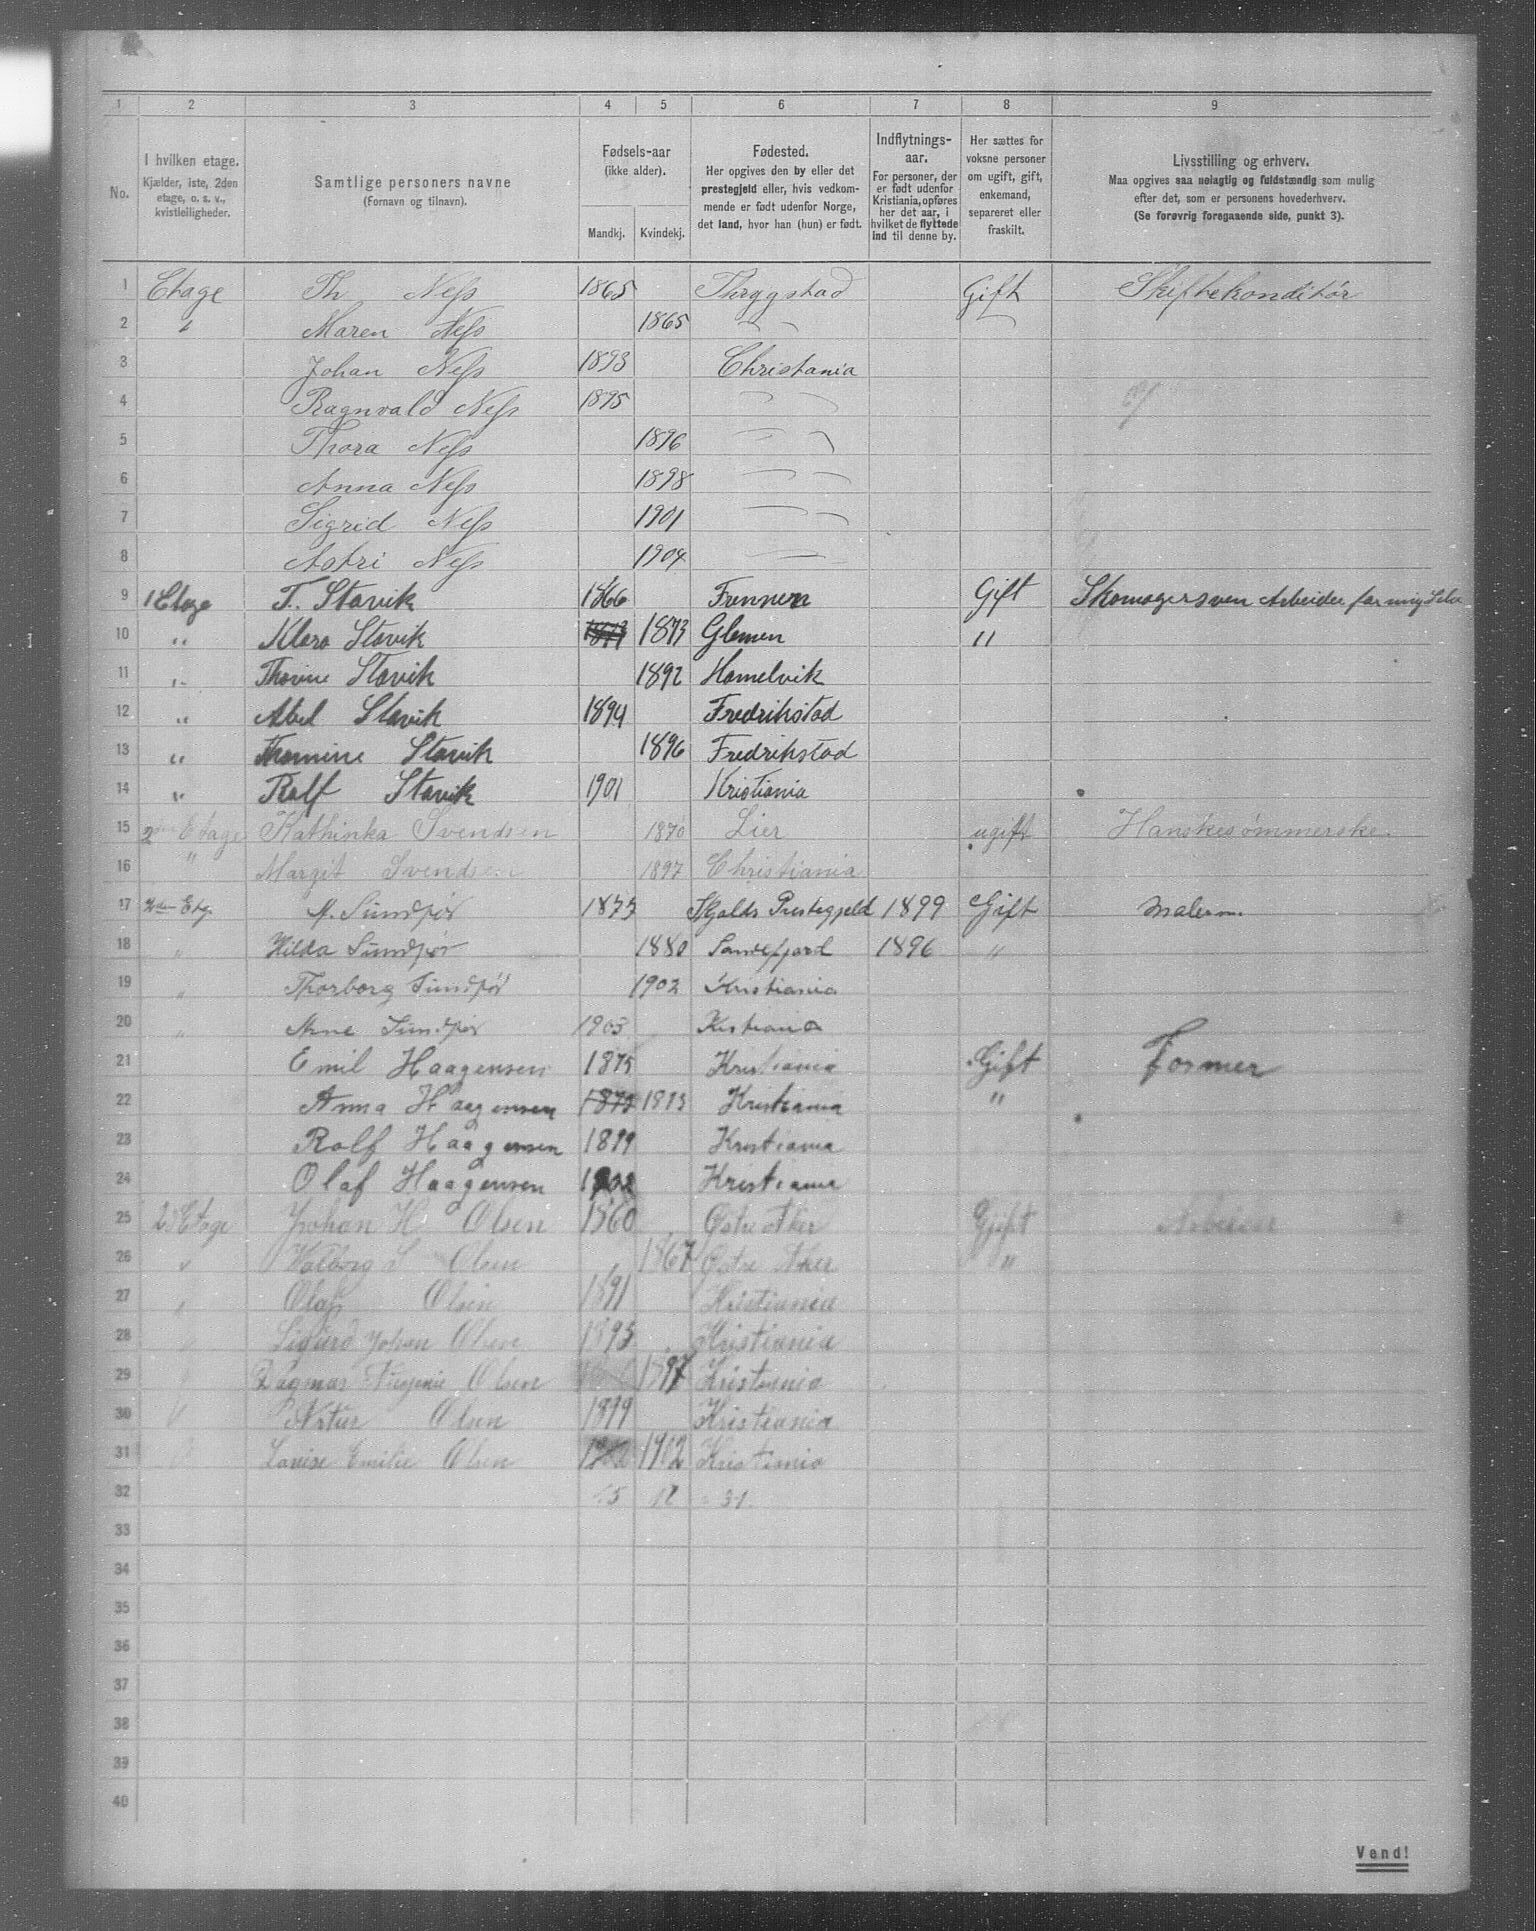 1 2 3 4 5 6 7 8 9
No.
I hvilken etage.
Kjælder, 1ste, 2den
etage, o. s. v.,
kvistleiligheder.
Samtlige personers navne
(Fornavn og tilnavn).
Fødsels-aar
(ikke alder).
Mandkj. Kvindekj.
Fødested.
Her opgives den by eller det
prestegjeld eller, hvis vedkom-
mende er født udenfor Norge,
det land, hvor han (hun) er født.
Indflytnings-
aar.
For personer, der
er født udenfor
Kristiania, opføres
her det aar, i
hvilket de flyttede
ind til denne by.
Her sættes for
voksne personer
om ugift, gift,
enkemand,
separeret eller
fraskilt.
Livsstilling og erhverv.
Maa opgives saa nøiagtig og fuldstændig som mulig
efter det, som er personens hovederhverv.
(Se forøvrig foregaaende side, punkt 3).
1 Etage Th Ness 1865 Thrygstad Gift Skiftekonditør
2 " Maren Ness 1865 — —
3 Johan Ness 1893 Christania
4 Ragnvald Ness 1895 —
5 Thora Ness 1896 —
6 Anna Ness 1898 —
7 Sigrid Ness 1901 —
8 Astri Ness 1904 —
9 1 Etage T. Stavik 1866 Gift Skomagersven Arbeider for mig Selv
10 " Klara Stavik 1873 1873 Glemen "
11 " Thorine Stavik 1892 Homelvik
12 " Abel Stavik 1894 Fredrikstad
13 " Thomine Stavik 1896 Fredrikstad
14 " Ralf Stavik 1901 Kristiania
15 2den Etage Kathinka Svendsen 1870 Lier ugift Hanskesømmerske.
16 " Margit Svendsen 1897 Christiania
17 2den Etg. M. Sundfør 1875 Skjolds Prestegjeld 1899 Gift Malersv.
18 " Hilda Sundfør 1880 Sandefjord 1896 "
19 " Thorborg Sundfør 1902 Kristiania
20 " Arne Sundfør 1903 Kistiania
21 Emil Haagensen 1875 Kristiania Gift Former
22 Anna Haagensen 1873 1873 Kristiania "
23 Rolf Haagensen 1899 Kristiania
24 Olaf Haagensen 1902 Kristiania
25 2 Etage Johan H. Olsen 1860 Østre Aker Gift Arbeider
26 " Valborg S Olsen 1867 Østre Aker "
27 " Olaf Olsen 1891 Kristiania
28 " Sigurd Johan Olsen 1895 Kristiania
29 " Dagmar Virginie Olsen 1897 Kristiania
30 " Artur Olsen 1899 Kristiania
31 " Lovise Emilie Olsen 1902 1902 Kristiania
32 15 12 = 31.
33
34
35
36
37
38
39
40
Vend!